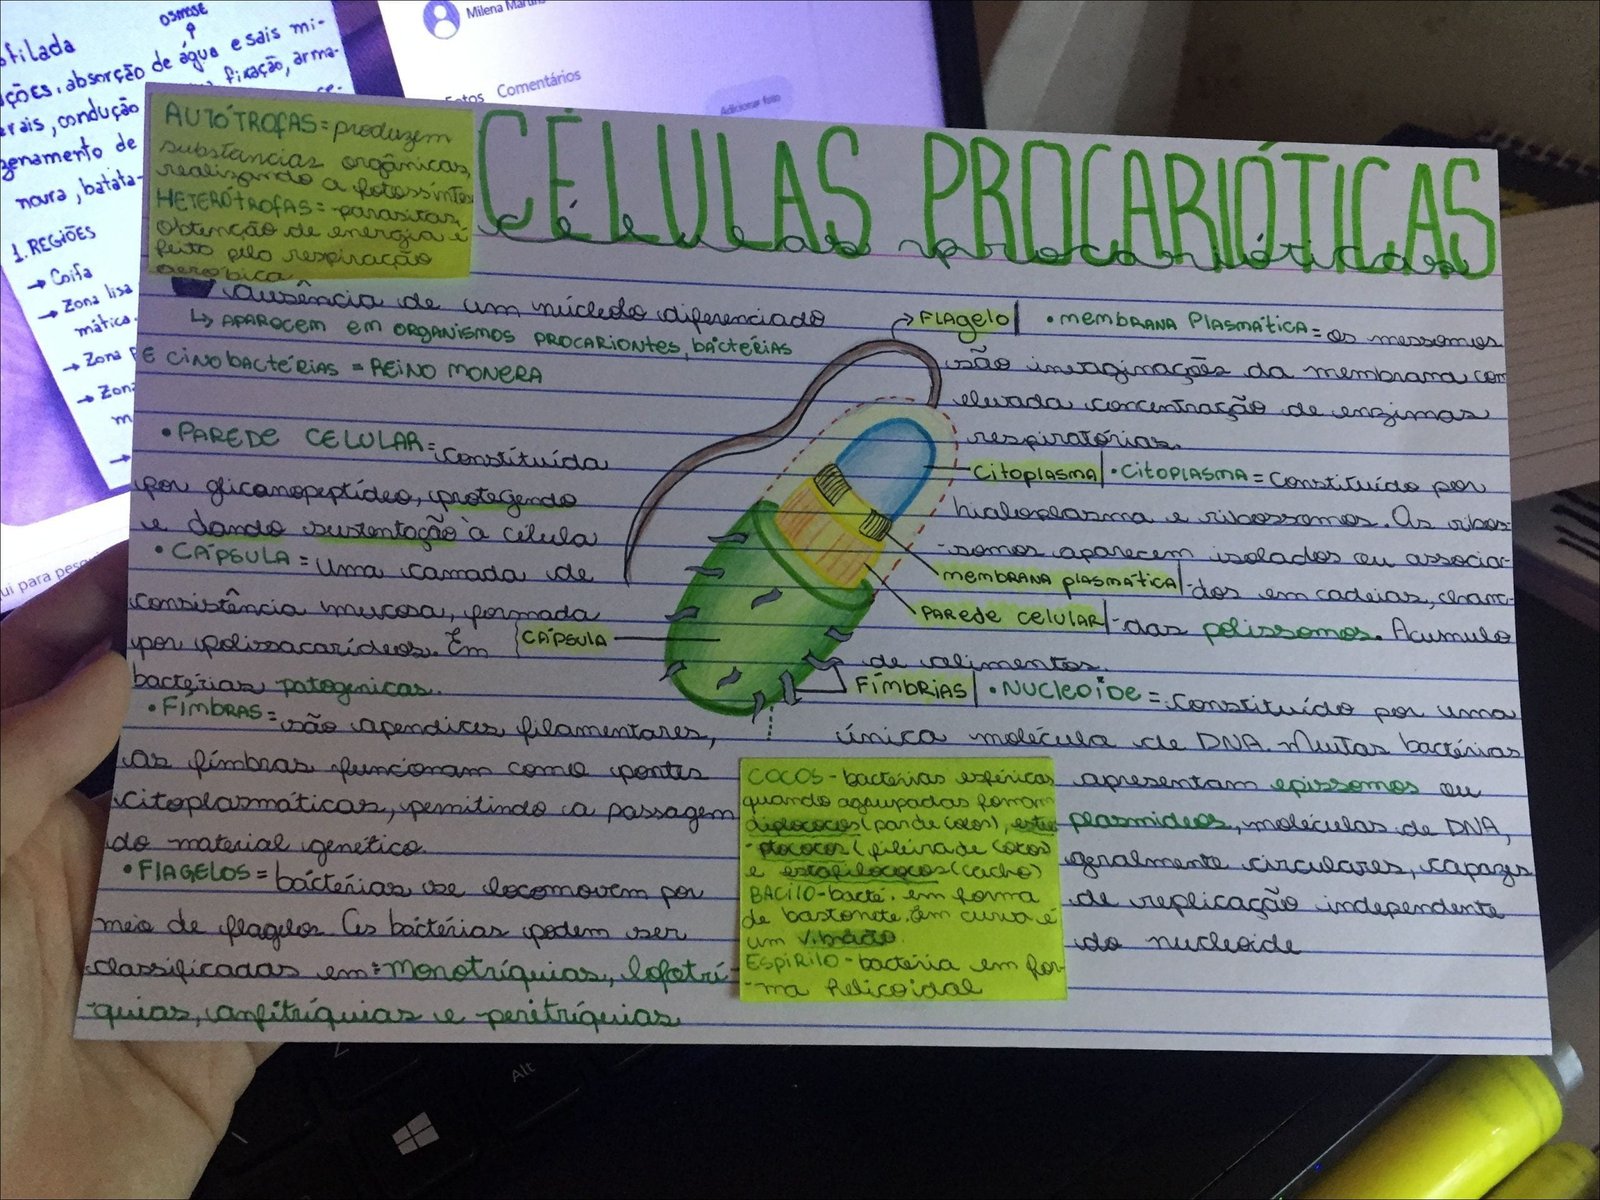 OSMOSE
ofilada
ções. absorção de água e sais mi-
erais, condução
fixação, arma-
zenamento de
noura, batata-
1. REGIÕES
→ Coifa
→ Zona lisa
mática.
→ Zona
→ Zona
Milena Martins
Fotos Comentários
Adicionar foto
ui para pesq
AUTÓTROFAS = produzem
substâncias orgânicas,
realizando a fotossíntes
HETERÓTROFAS = parasitas,
obtenção de energia é
feito pela respiração
aeróbica
CÉLULAS PROCARIÓTICAS
células procarióticas
Ausência de um núcleo diferenciado
↳ APARECEM EM ORGANISMOS PROCARIONTES, BÁCTÉRIAS
E CINOBACTÉRIAS = REINO MONERA
• PAREDE CELULAR = constituída
por glicanopeptídeo, protegendo
e dando sustentação à célula
• CÁPSULA = Uma camada de
consistência mucosa, formada
por polissacarídeos. Em
bactérias patogenicas.
• FÍMBRAS = são apendices filamentares,
as fímbras funcionam como pontes
citoplasmáticas, permitindo a passagem
do material genético.
• FlAGELOS = báctérias se locomovem por
meio de flagelos. As báctérias podem ser
classificadas em: monotríquias, lofotrí-
-quias, anfitríquias e peritríquias
FLAgelo
Citoplasma
membrana plasmática
PARede celular
CÁPSULA
FÍmbrias
• membrana Plasmática = os messomos
são invaginações da membrana com
elevada concentração de enzimas
respiratórias.
• CITOPLASMA = Constituído por
hialoplasma e ribossomos. Os ribos-
-somos aparecem isolados ou associa-
-dos em cadeias, chama-
-das polissomos. Acumulo
de alimentos.
• NUCLEOIDE = Constituído por uma
única molécula de DNA. Muitas bactérias
apresentam epissomos ou
plasmideos, moléculas de DNA,
geralmente circulares, capazes
de replicação independente
do nucleoide
COCOS - bactérias esféricas
quando agrupadas formam
diplococos (par de cocos), estre
-ptococos (fileira de cocos)
e estafilococos (cacho)
BACILO - bacté. em forma
de bastonete. Em curva é
um vibrião.
ESPIRILO - bactéria em for-
-ma helicoidal
Alt